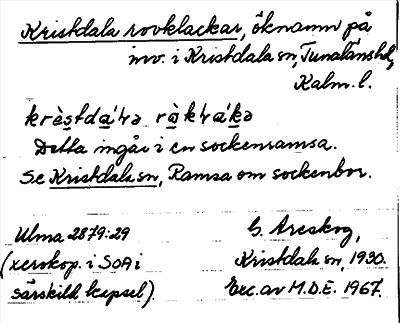 Kristdala rovklackar, öknamn på
inv. i Kristdala sn, Tunaläns hd,
Kalm. l.
krèstdá'lə ràkkla'kə
Detta ingår i en sockenramsa.
Se Kristdala sn, Ramsa om sockenbor.
Ulma 2879:29
(xerokop. i SOA i
särskild kapsel).
G. Areskog,
Kristdala sn, 1930.
Exc. av M.D.E. 1967.